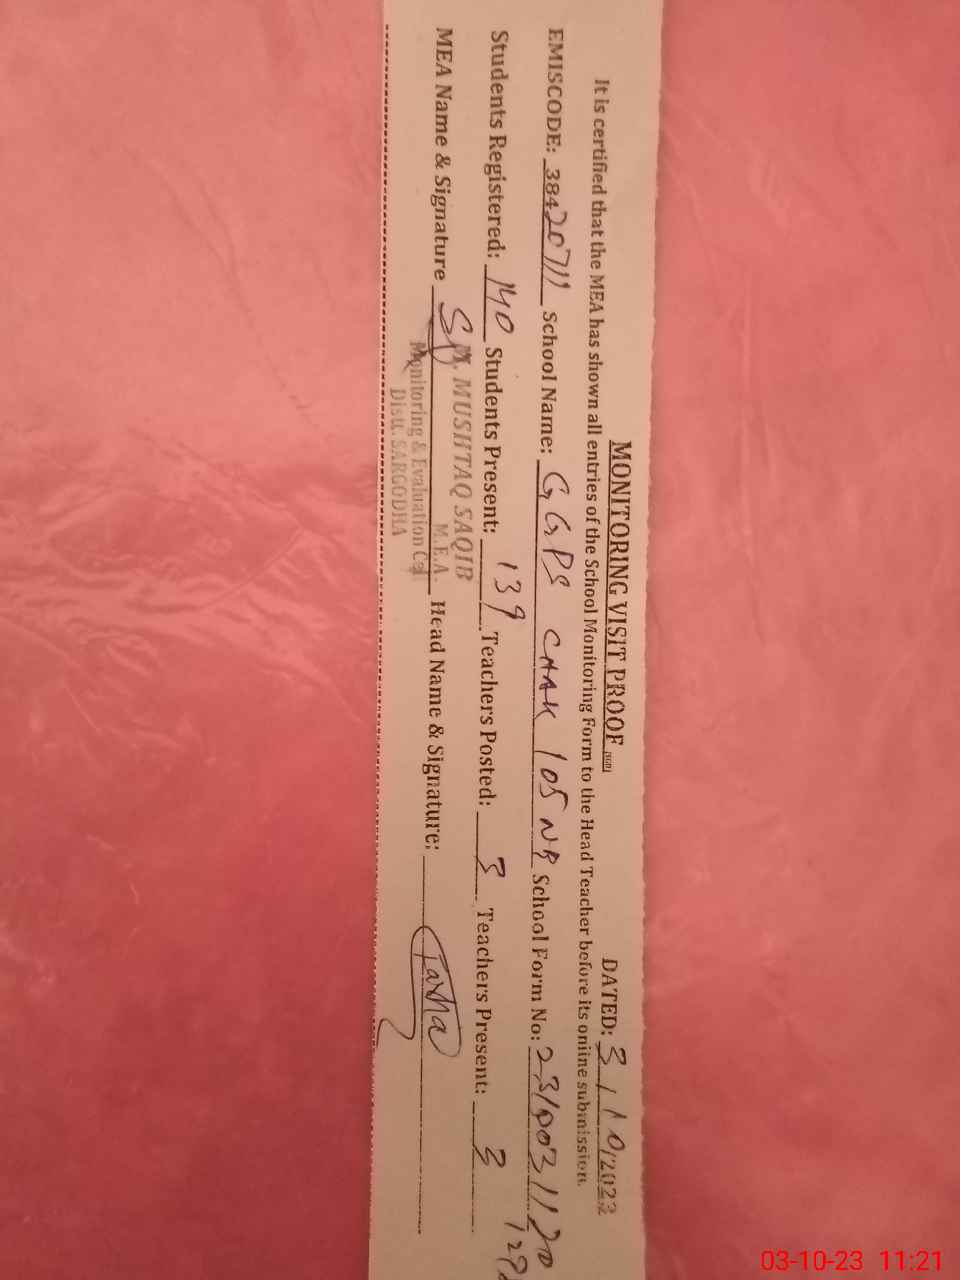 MONITORING VISIT PROOF DATED: 3/10/2023
It is certified that the MEA has shown all entries of the School Monitoring Form to the Head Teacher before its online submission.
EMISCODE: 38420711 School Name: GGPS CHAK 105 NB School Form No: 2310031120
Students Registered: 140 Students Present: 139 Teachers Posted: 3 Teachers Present: 3
M. MUSHTAQ SAQIB
M.E.A.
MEA Name & Signature Head Name & Signature:
Monitoring & Evaluation Cell
Distt. SARGODHA
03-10-23 11:21